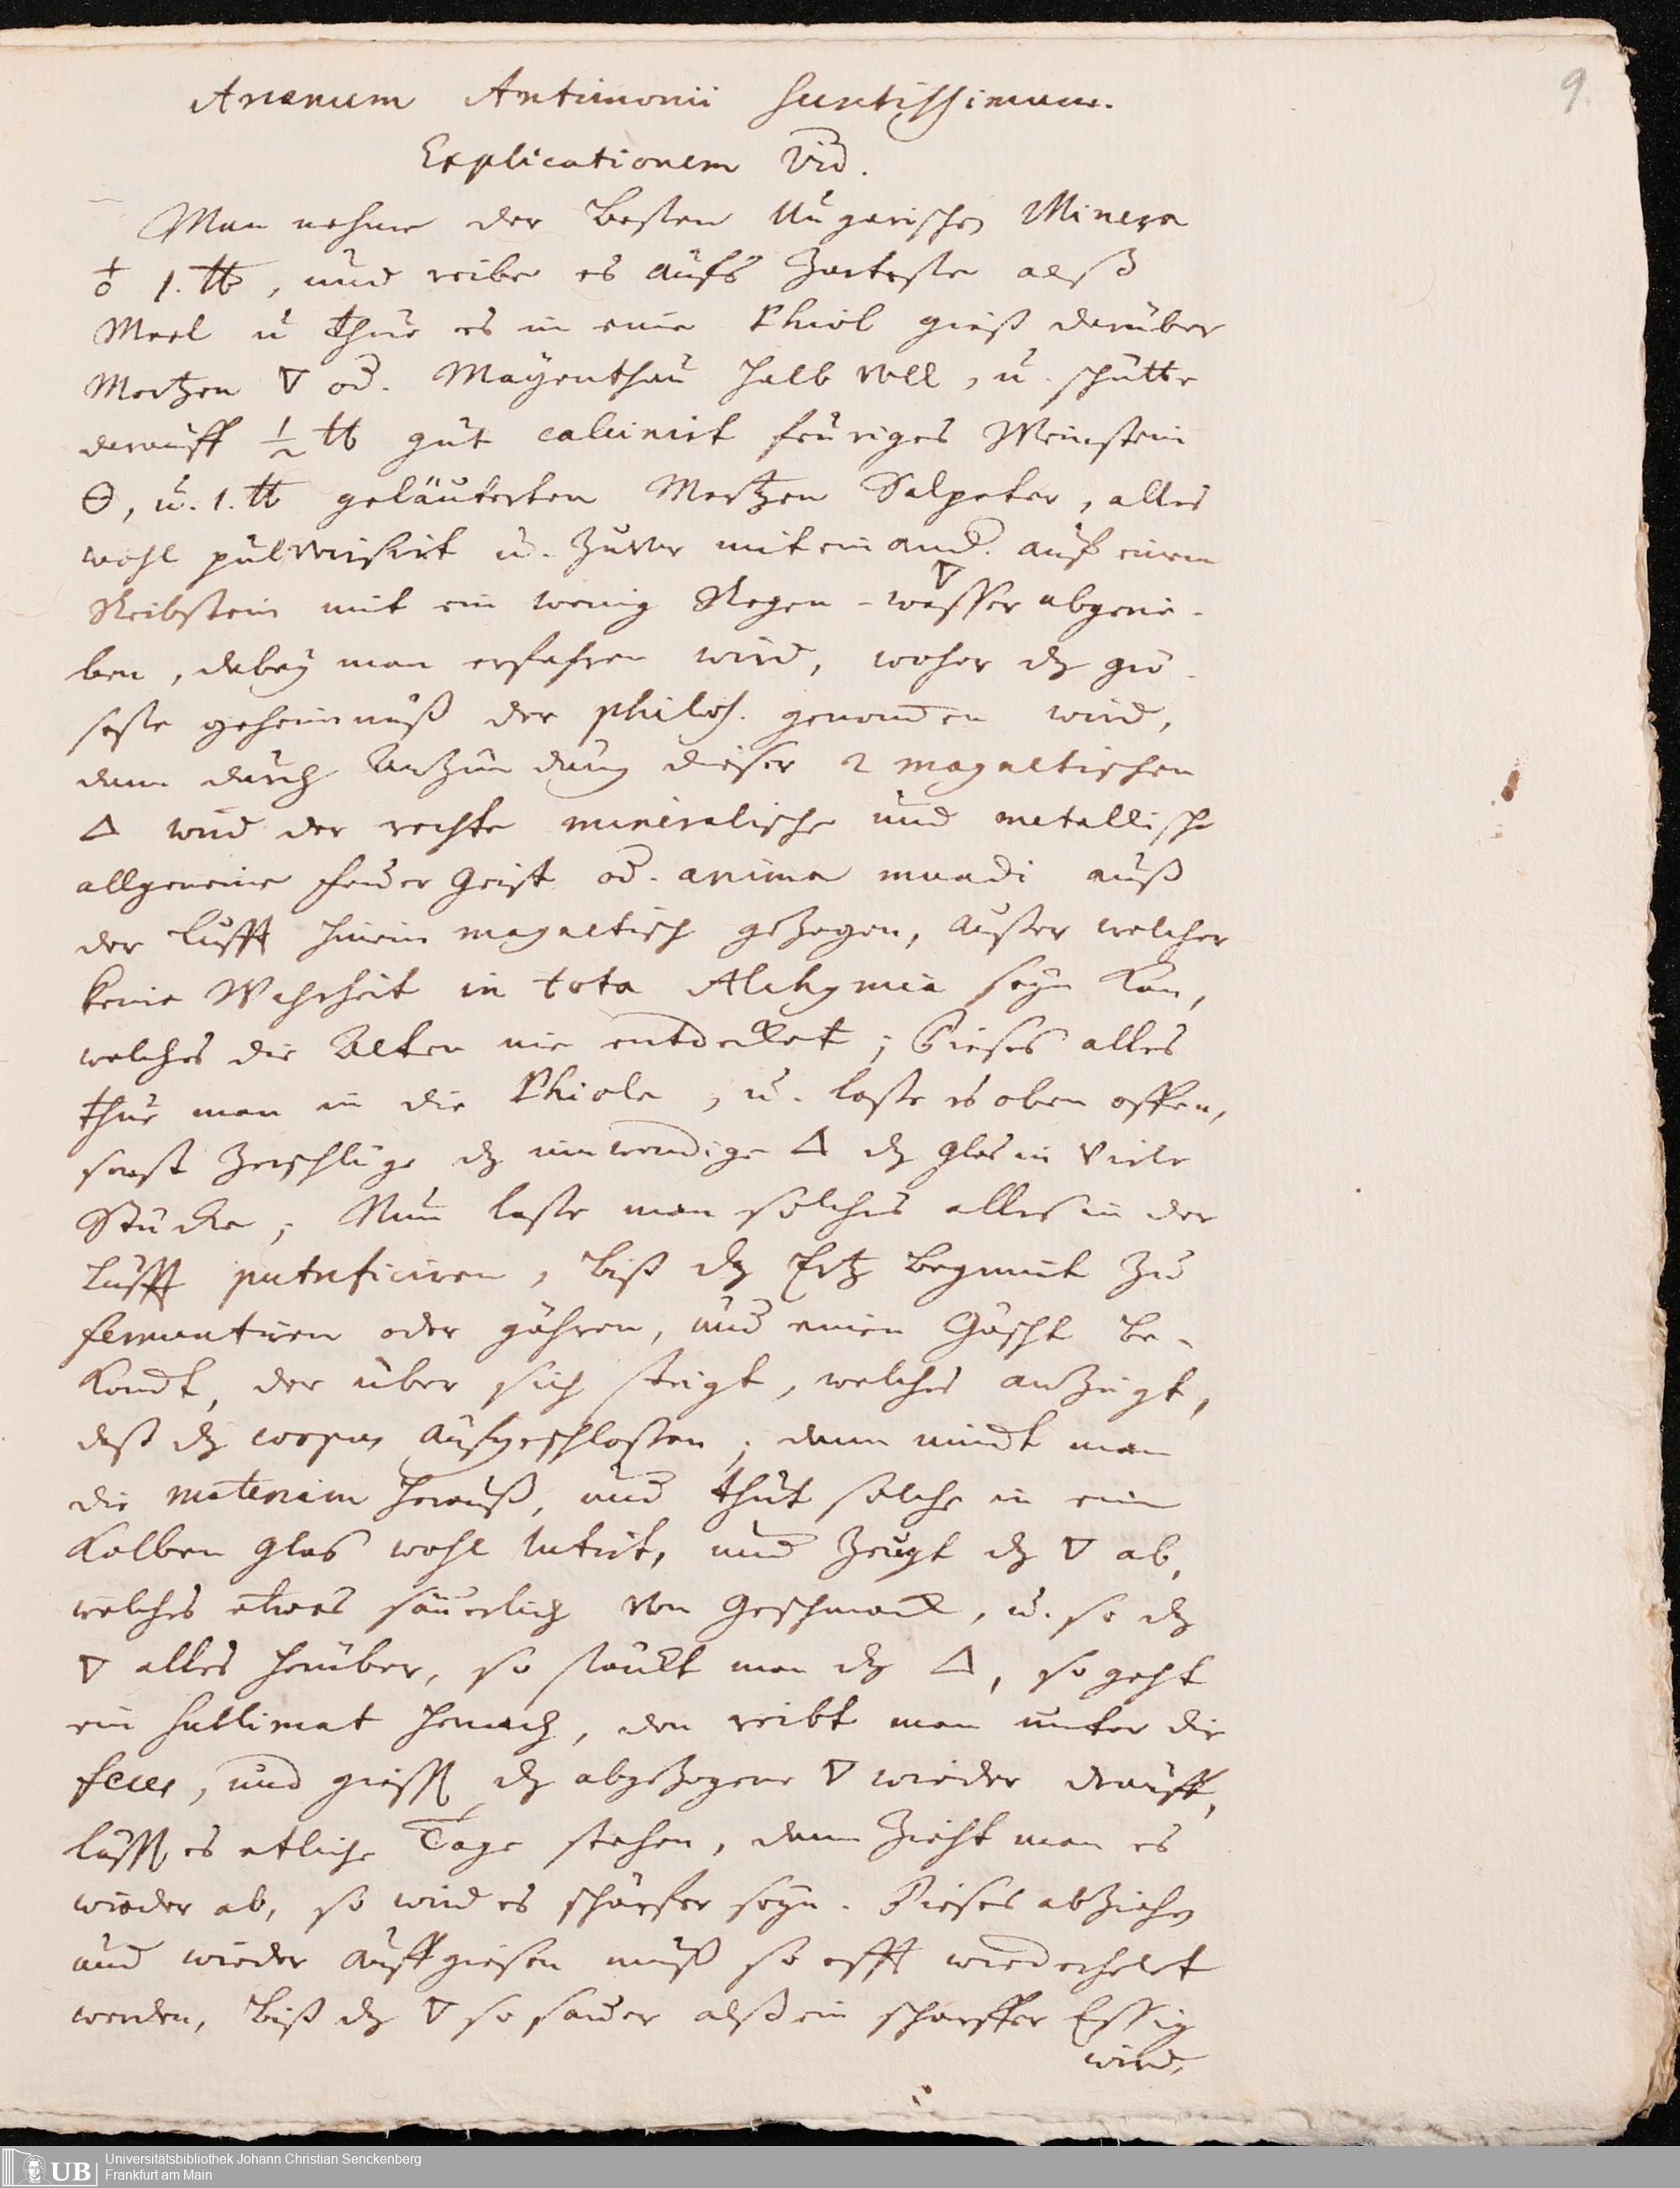 9.
Arcanum Antimonii Sanctissimum.
Explicationem Vid.
Man nehme der besten Ungarischen Minera
♁ 1. ℔, und reibe es aufs Zarteste alß
Meel u thue es in eine Phiol gieß darüber
Mertzen ▽ od. Mayenthau halb voll, u. schütte
darauff ½ ℔ gut calcinirt feuriges Weinstein
🜔, u. 1. ℔ geläuterten Mertzen Salpeter, alles
wohl pulverisirt u. zuvor mit einand. auf einem
Reibstein mit ein wenig Regen-wasser ▽ abgerie-
ben, dabey man erfahren wird, woher dz grö-
seste geheimnuß der philos. genomen wird,
dann durch Anzündung dieser 2 magnetischen
△ wird der rechte mineralische und metallische
allgemeine feuer Geist od. anima mundi auß
der Lufft hinein magnetisch gezogen, ausser welcher
keine Wahrheit in tota Alchymia seyn kan,
welches die Alten nie entdecket; Dieses alles
thue man in die Phiole, u. lasse es oben offen,
sonst zerschlüge dz inwendige △ dz Glas in viele
Stücke; Nun lasse man solches alles in der
Lufft putrificiren, biß dz Ertz beginnt zu
fermentiren oder gähren, und einen Gäscht be-
komt, der über sich steigt, welches anzeigt,
daß dz corpus aufgeschlossen; dann nimt man
die materiam herauß, und thut solche in ein
Kolben Glas wohl lutirt, und zeugt dz ▽ ab,
welches etwas säuerlich von Geschmack, u. so dz
▽ alles herüber, so stärckt man dz △, so geht
ein sublimat hernach, den reibt man unter die
feces, und giesst dz abgezogene ▽ wieder drauff,
lässt es etliche Tage stehen, dann zieht man es
wieder ab, so wird es schärfer seyn. Dieses abziehen
und wieder auffgiesen muß so offt wiederholet
werden, biß dz ▽ so sauer alß ein scharffer Essig
wird,
UB
Universitätsbibliothek Johann Christian Senckenberg
Frankfurt am Main